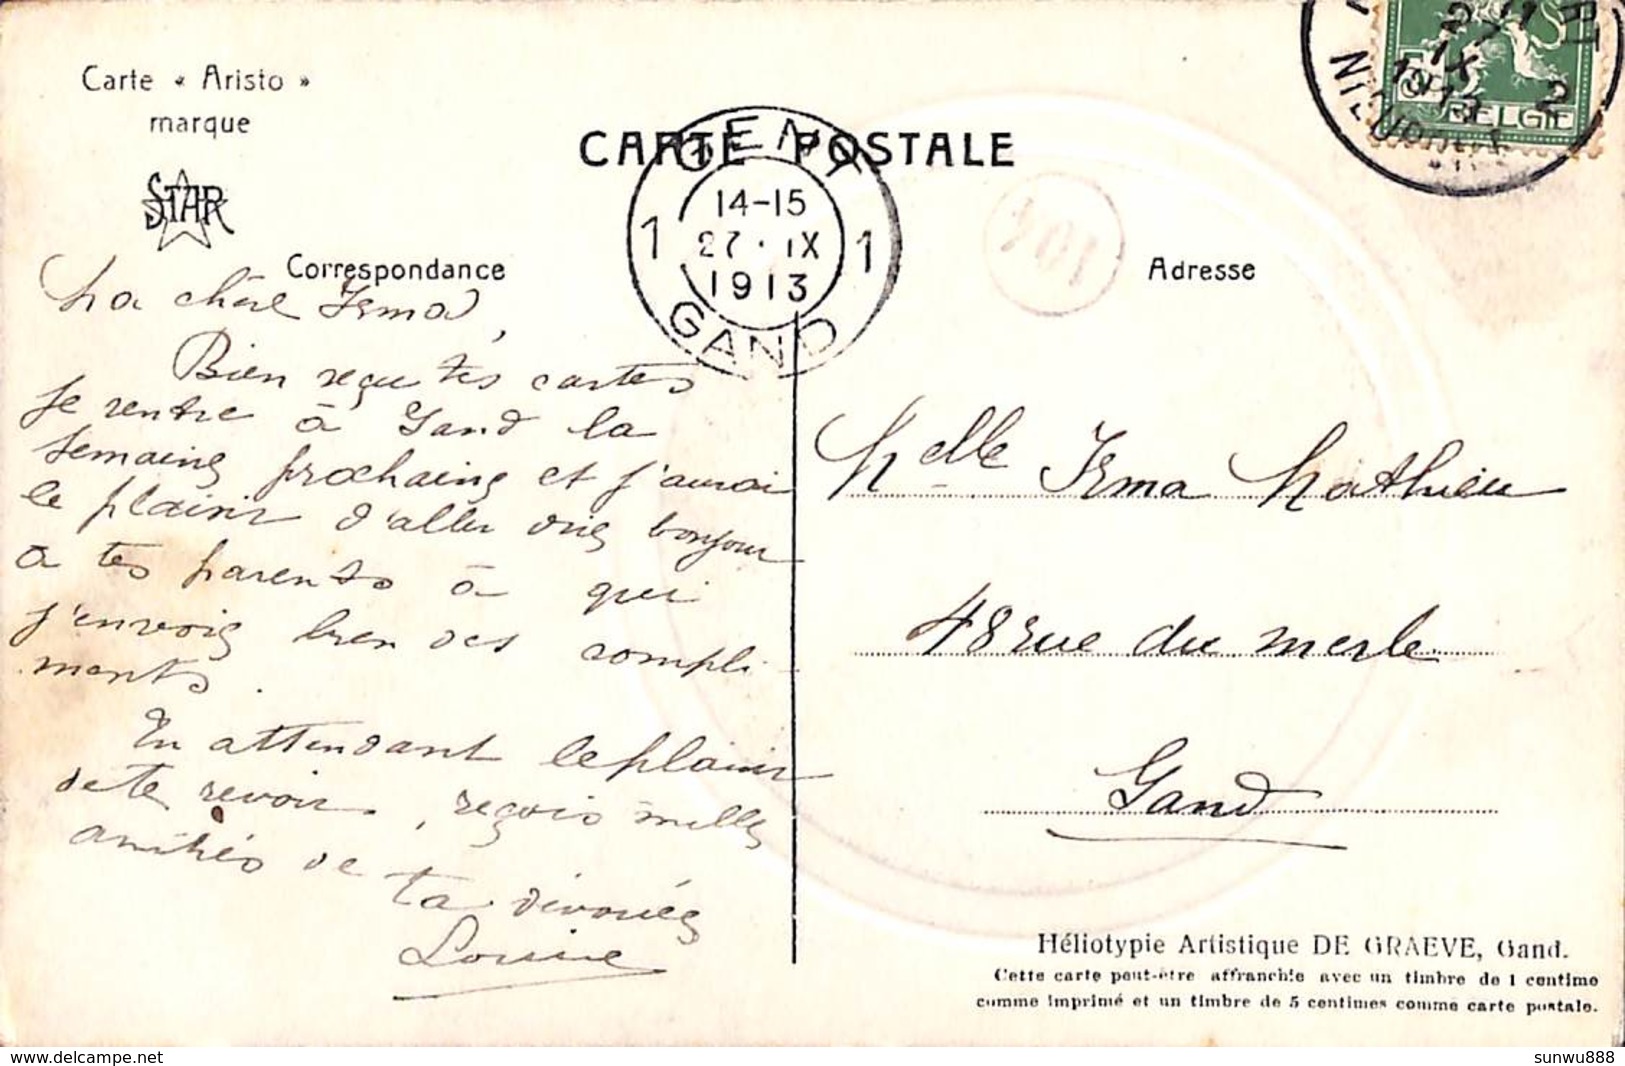 Carte « Aristo »
marque
STAR
CARTE POSTALE
GENT
14-15
1 27 · IX 1
1913
GAND
IX
1913
BELGIE
Correspondance
Adresse
Ma chère Irma,
Bien reçu tes cartes
Je rentre à Gand la
semaine prochaine et j'aurai
le plaisir d'aller dire bonjour
a tes parents à qui
j'envoie bien des compli-
ments.
En attendant le plaisir
de te revoir, reçois mille
amitiés de
ta dévouée
Louise
Melle Irma Mathieu
48 rue du merle
Gand
Héliotypie Artistique DE GRAEVE, Gand.
Cette carte peut-être affranchie avec un timbre de 1 centime
comme imprimé et un timbre de 5 centimes comme carte postale.
delcampe.net
sunwu888